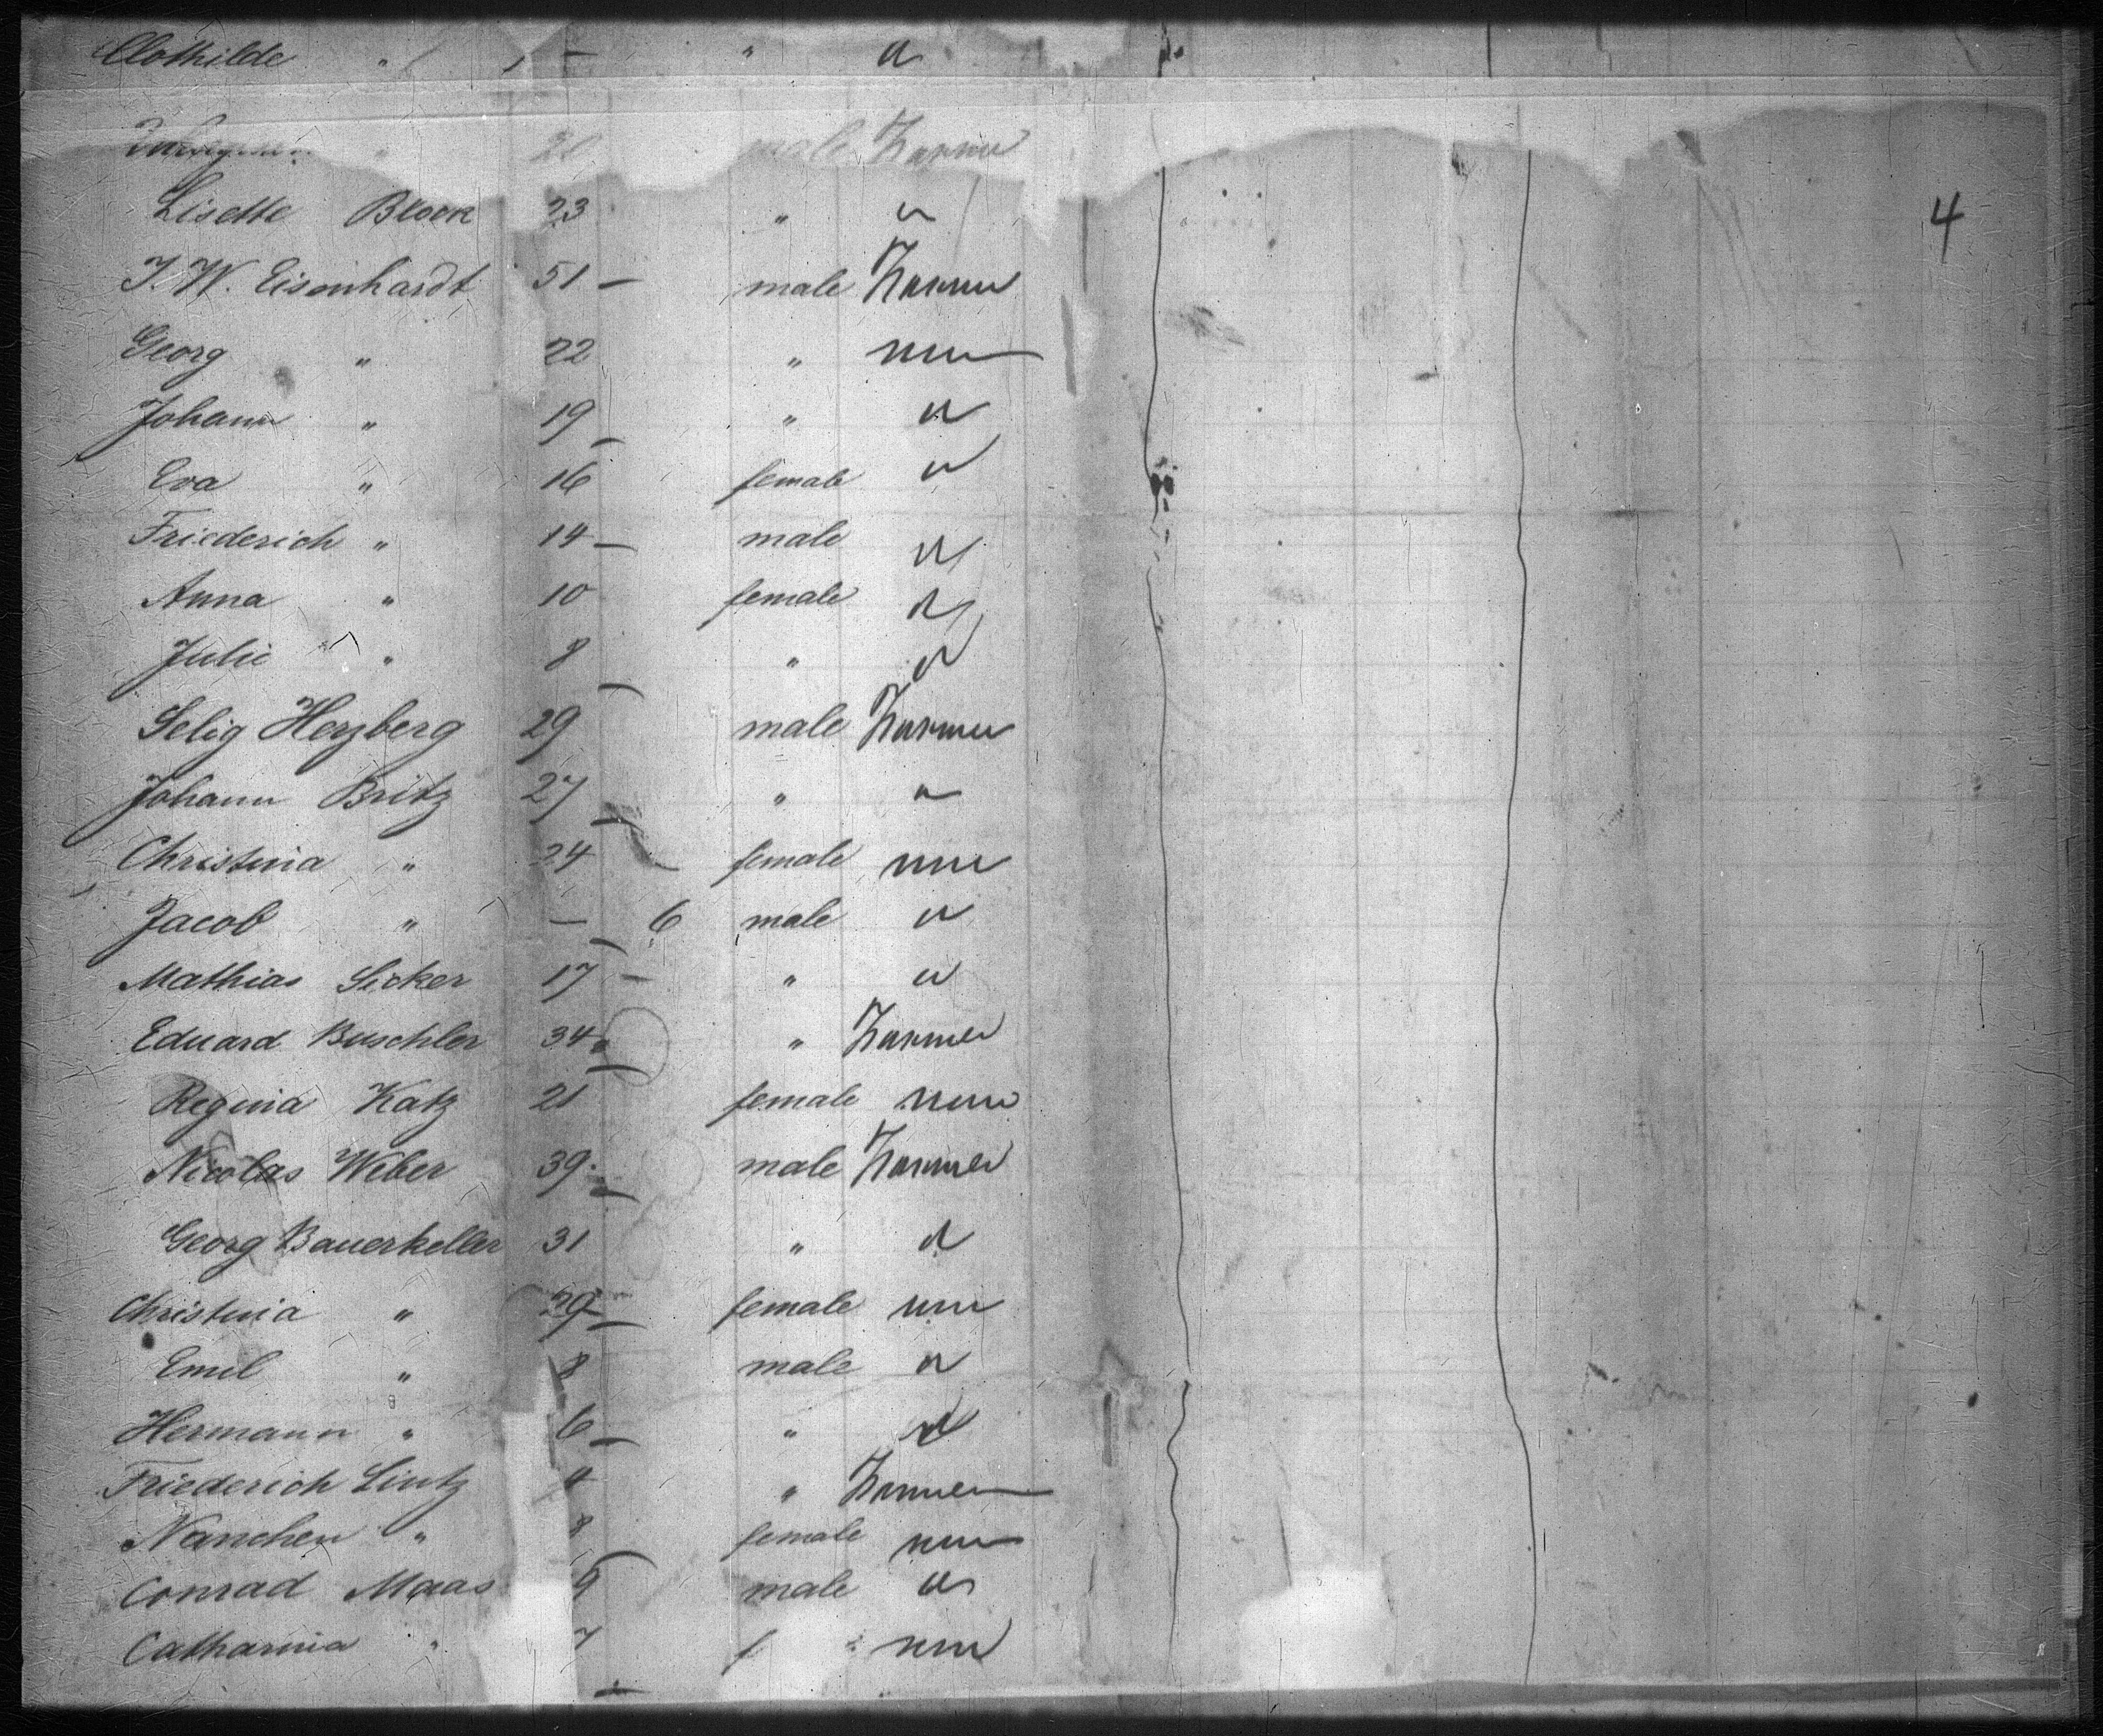 Clothilde " — " "
20 male Farmer
Lisette Block 23 " "
J. W. Eisenhardt 51 — male Farmer
4
Georg " 22 " none
Johann " 19 " "
Eva " 16 female "
Friederich " 14 male "
Anna " 10 female "
Julie " 8 " "
Selig Herzberg 29 male Farmer
Johann Britz 27 " "
Christina " 24 female none
Jacob " — 6 male "
Mathias Sicker 17 " "
Eduard Buschler 34 " Farmer
Regina Katz 21 female none
Nicolas Weber 39 male Farmer
Georg Bauerkeller 31 " "
Christina " 29 female none
Emil " 8 male "
Hermann " 6 " "
Friederich Lintz 4 " Farmer
Nanchen " 8 female none
Conrad Maas 9 male "
Catharina " 7 f " none